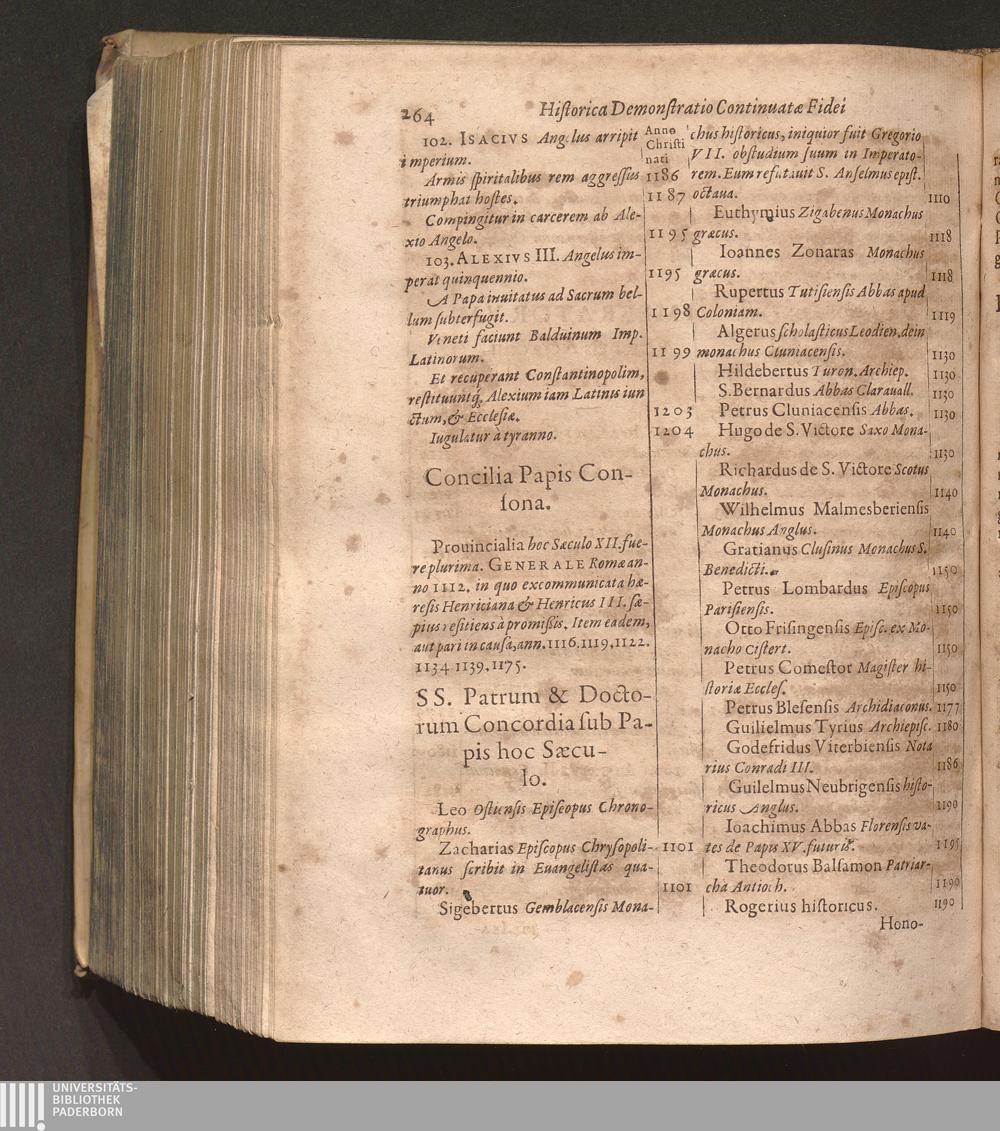 264 Historica Demonstratio Continuatæ Fidei
102. ISACIVS Angelus arripit
imperium.
Armis spiritalibus rem aggressus
triumphat hostes.
Compingitur in carcerem ab Ale-
xio Angelo.
103. ALEXIVS III. Angelus im-
perat quinquennio.
A Papa inuitatus ad Sacrum bel-
lum subterfugit.
Veneti faciunt Balduinum Imp.
Latinorum.
Et recuperant Constantinopolim,
restituuntq; Alexium iam Latinis iun
ctum, & Ecclesiæ.
Iugulatur à tyranno.
Concilia Papis Con-
sona.
Prouincialia hoc Sæculo XII. fue-
re plurima. GENERALE Romæ an-
no 1112. in quo excommunicata hæ-
resis Henriciana & Henricus III. sæ-
pius resiliens à promissis. Item eadem,
aut pari in causa, ann. 1116. 1119. 1122.
1134 1139. 1175.
SS. Patrum & Docto-
rum Concordia sub Pa-
pis hoc Sæcu-
lo.
Leo Ostiensis Episcopus Chrono-
graphus.
Zacharias Episcopus Chrysopoli-
tanus scribit in Euangelistas qua-
tuor.
Sigebertus Gemblacensis Mona-
Anno
Christi
nati
1186
1187
1195
1195
1198
1199
1203
1204
1101
1101
chus historicus, iniquior fuit Gregorio
VII. obstudium suum in Imperato-
rem. Eum refutauit S. Anselmus epist.
octaua. 1110
Euthymius Zigabenus Monachus
græcus. 1118
Ioannes Zonaras Monachus
græcus. 1118
Rupertus Tutisiensis Abbas apud
Coloniam. 1119
Algerus scholasticus Leodien. dein
monachus Cluniacensis. 1130
Hildebertus Turon. Archiep. 1130
S. Bernardus Abbas Clarauall. 1130
Petrus Cluniacensis Abbas. 1130
Hugo de S. Victore Saxo Mona-
chus. 1130
Richardus de S. Victore Scotus
Monachus. 1140
Wilhelmus Malmesberiensis
Monachus Anglus. 1140
Gratianus Clusinus Monachus S.
Benedicti. 1150
Petrus Lombardus Episcopus
Parisiensis. 1150
Otto Frisingensis Episc. ex Mo-
nacho Cistert. 1150
Petrus Comestor Magister hi-
storiæ Eccles. 1150
Petrus Blesensis Archidiaconus. 1177
Guilielmus Tyrius Archiepisc. 1180
Godefridus Viterbiensis Nota
rius Conradi III. 1186
Guilelmus Neubrigensis histo-
ricus Anglus. 1190
Ioachimus Abbas Florensis va-
tes de Papis XV. futuris. 1195
Theodorus Balsamon Patriar-
cha Antioch. 1190
Rogerius historicus. 1190
Hono-
UNIVERSITÄTS-
BIBLIOTHEK
PADERBORN